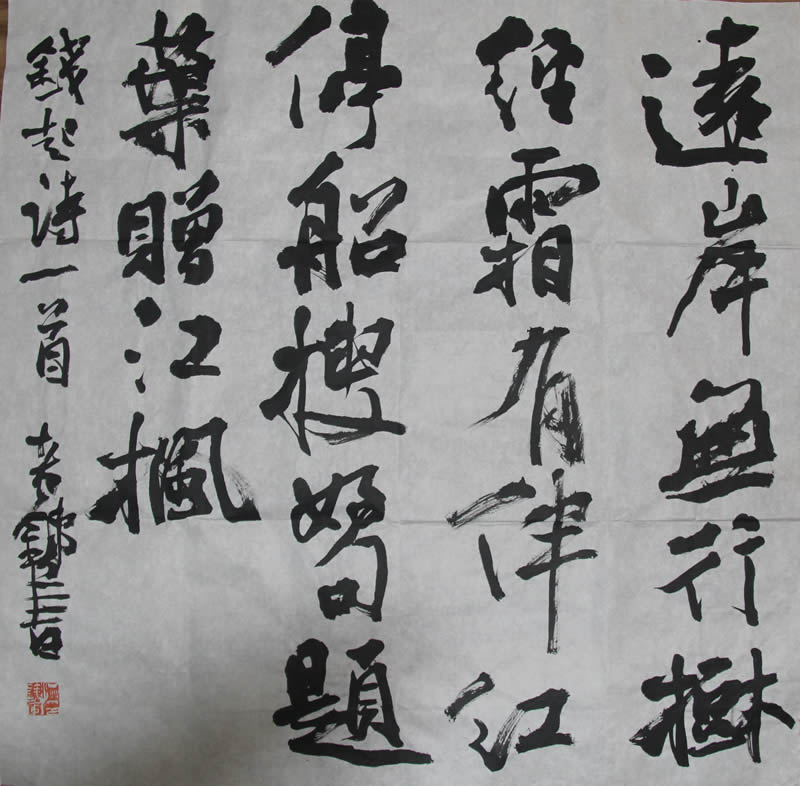 遠岸無行樹
經霜有伴紅
停船搜好句題
葉贈江楓
錢起詩一首
書